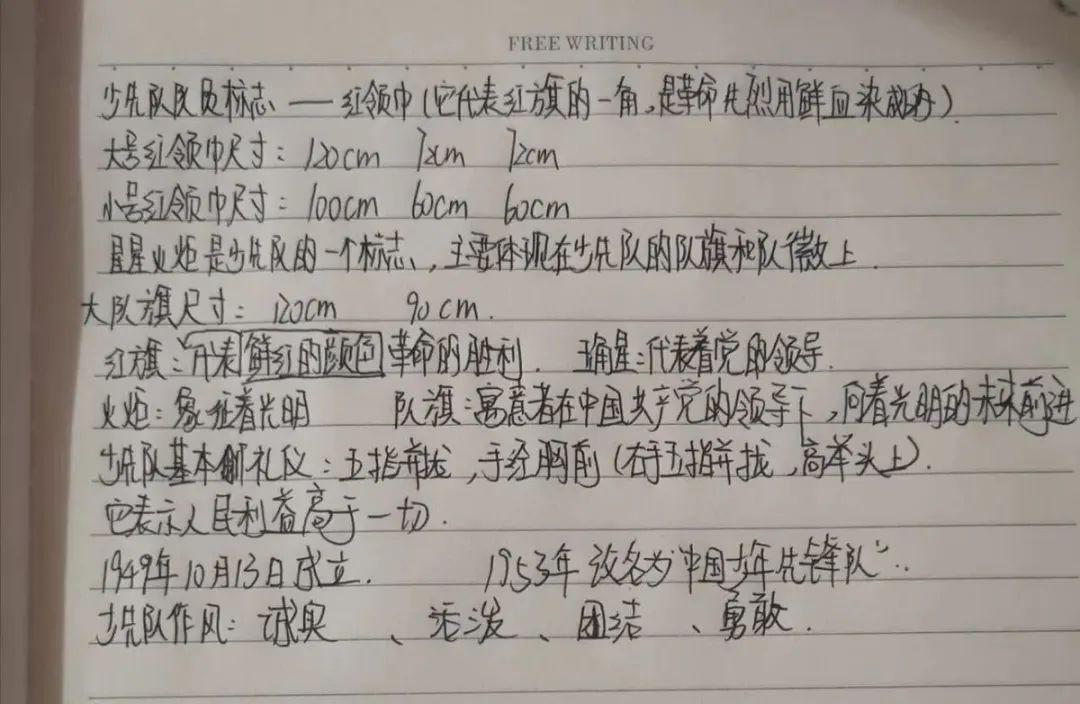 FREE WRITING
少先队队员标志——红领巾(它代表红旗的一角,是革命先烈用鲜血染成的).
大号红领巾尺寸:120cm 72cm 72cm
小号红领巾尺寸:100cm 60cm 60cm
星星火炬是少先队的一个标志,主要体现在少先队的队旗和队徽上.
大队旗尺寸:120cm 90cm.
红旗:代表鲜红的颜色革命的胜利. 五角星:代表着党的领导.
火炬:象征着光明 队旗:寓意者在中国共产党的领导下,向着光明的未来前进
少先队基本礼仪:五指并拢,手经胸前(右手五指并拢,高举头上).
它表示人民利益高于一切.
1949年10月13日成立. 1953年改名为"中国少年先锋队"..
少先队作风:诚实、活泼、团结、勇敢.